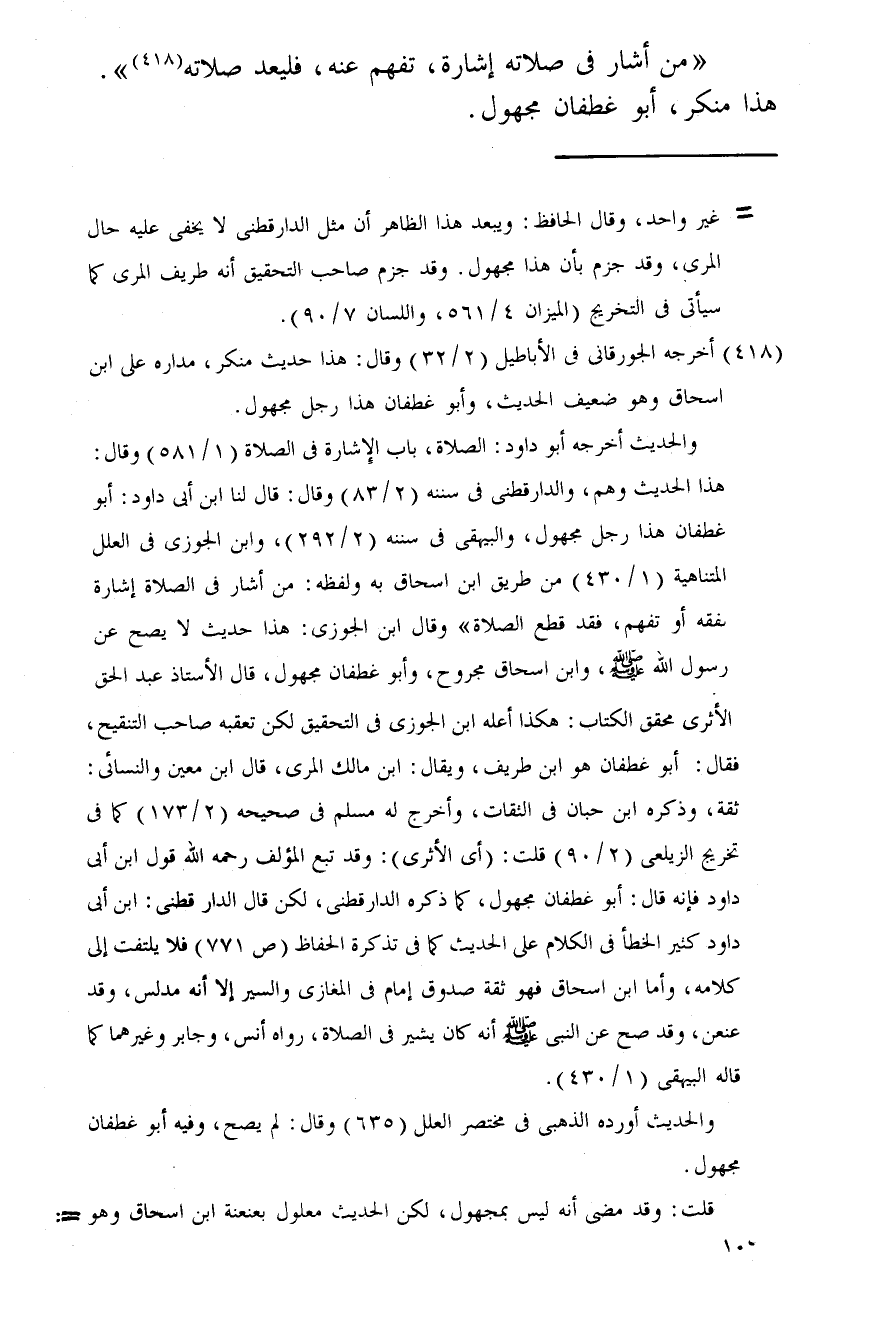 «من أشار فى صلاته إشارة، تفهم عنه، فليعد صلاته(٤١٨)».
هذا منكر، أبو غطفان مجهول.
= غير واحد، وقال الحافظ: ويبعد هذا الظاهر أن مثل الدارقطنى لا يخفى عليه حال
المرى، وقد جزم بأن هذا مجهول. وقد جزم صاحب التحقيق أنه طريف المرى كما
سيأتى فى التخريج (الميزان ٤/٥٦١، واللسان ٧/٩٠).
(٤١٨) أخرجه الجورقانى فى الأباطيل (٢/٣٢) وقال: هذا حديث منكر، مداره على ابن
اسحاق وهو ضعيف الحديث، وأبو غطفان هذا رجل مجهول.
والحديث أخرجه أبو داود: الصلاة، باب الإشارة فى الصلاة (١/٥٨١) وقال:
هذا الحديث وهم، والدارقطنى فى سننه (٢/٨٣) وقال: قال لنا ابن أبى داود: أبو
غطفان هذا رجل مجهول، والبيهقى فى سننه (٢/٢٩٢)، وابن الجوزى فى العلل
المتناهية (١/٤٣٠) من طريق ابن اسحاق به ولفظه: من أشار فى الصلاة إشارة
بفقه أو تفهم، فقد قطع الصلاة» وقال ابن الجوزى: هذا حديث لا يصح عن
رسول الله ﷺ، وابن اسحاق مجروح، وأبو غطفان مجهول، قال الأستاذ عبد الحق
الأثرى محقق الكتاب: هكذا أعله ابن الجوزى فى التحقيق لكن تعقبه صاحب التنقيح،
فقال: أبو غطفان هو ابن طريف، ويقال: ابن مالك المرى، قال ابن معين والنسائى:
ثقة، وذكره ابن حبان فى الثقات، وأخرج له مسلم فى صحيحه (٢/١٧٣) كما فى
تخريج الزيلعى (٢/٩٠) قلت: (أى الأثرى): وقد تبع المؤلف رحمه الله قول ابن أبى
داود فإنه قال: أبو غطفان مجهول، كما ذكره الدارقطنى، لكن قال الدار قطنى: ابن أبى
داود كثير الخطأ فى الكلام على الحديث كما فى تذكرة الحفاظ (ص ٧٧١) فلا يلتفت إلى
كلامه، وأما ابن اسحاق فهو ثقة صدوق إمام فى المغازى والسير إلا أنه مدلس، وقد
عنعن، وقد صح عن النبى ﷺ أنه كان يشير فى الصلاة، رواه أنس، وجابر وغيرهما كما
قاله البيهقى (١/٤٣٠).
والحديث أورده الذهبى فى مختصر العلل (٦٣٥) وقال: لم يصح، وفيه أبو غطفان
مجهول.
قلت: وقد مضى أنه ليس بمجهول، لكن الحديث معلول بعنعنة ابن اسحاق وهو =
١٠٠